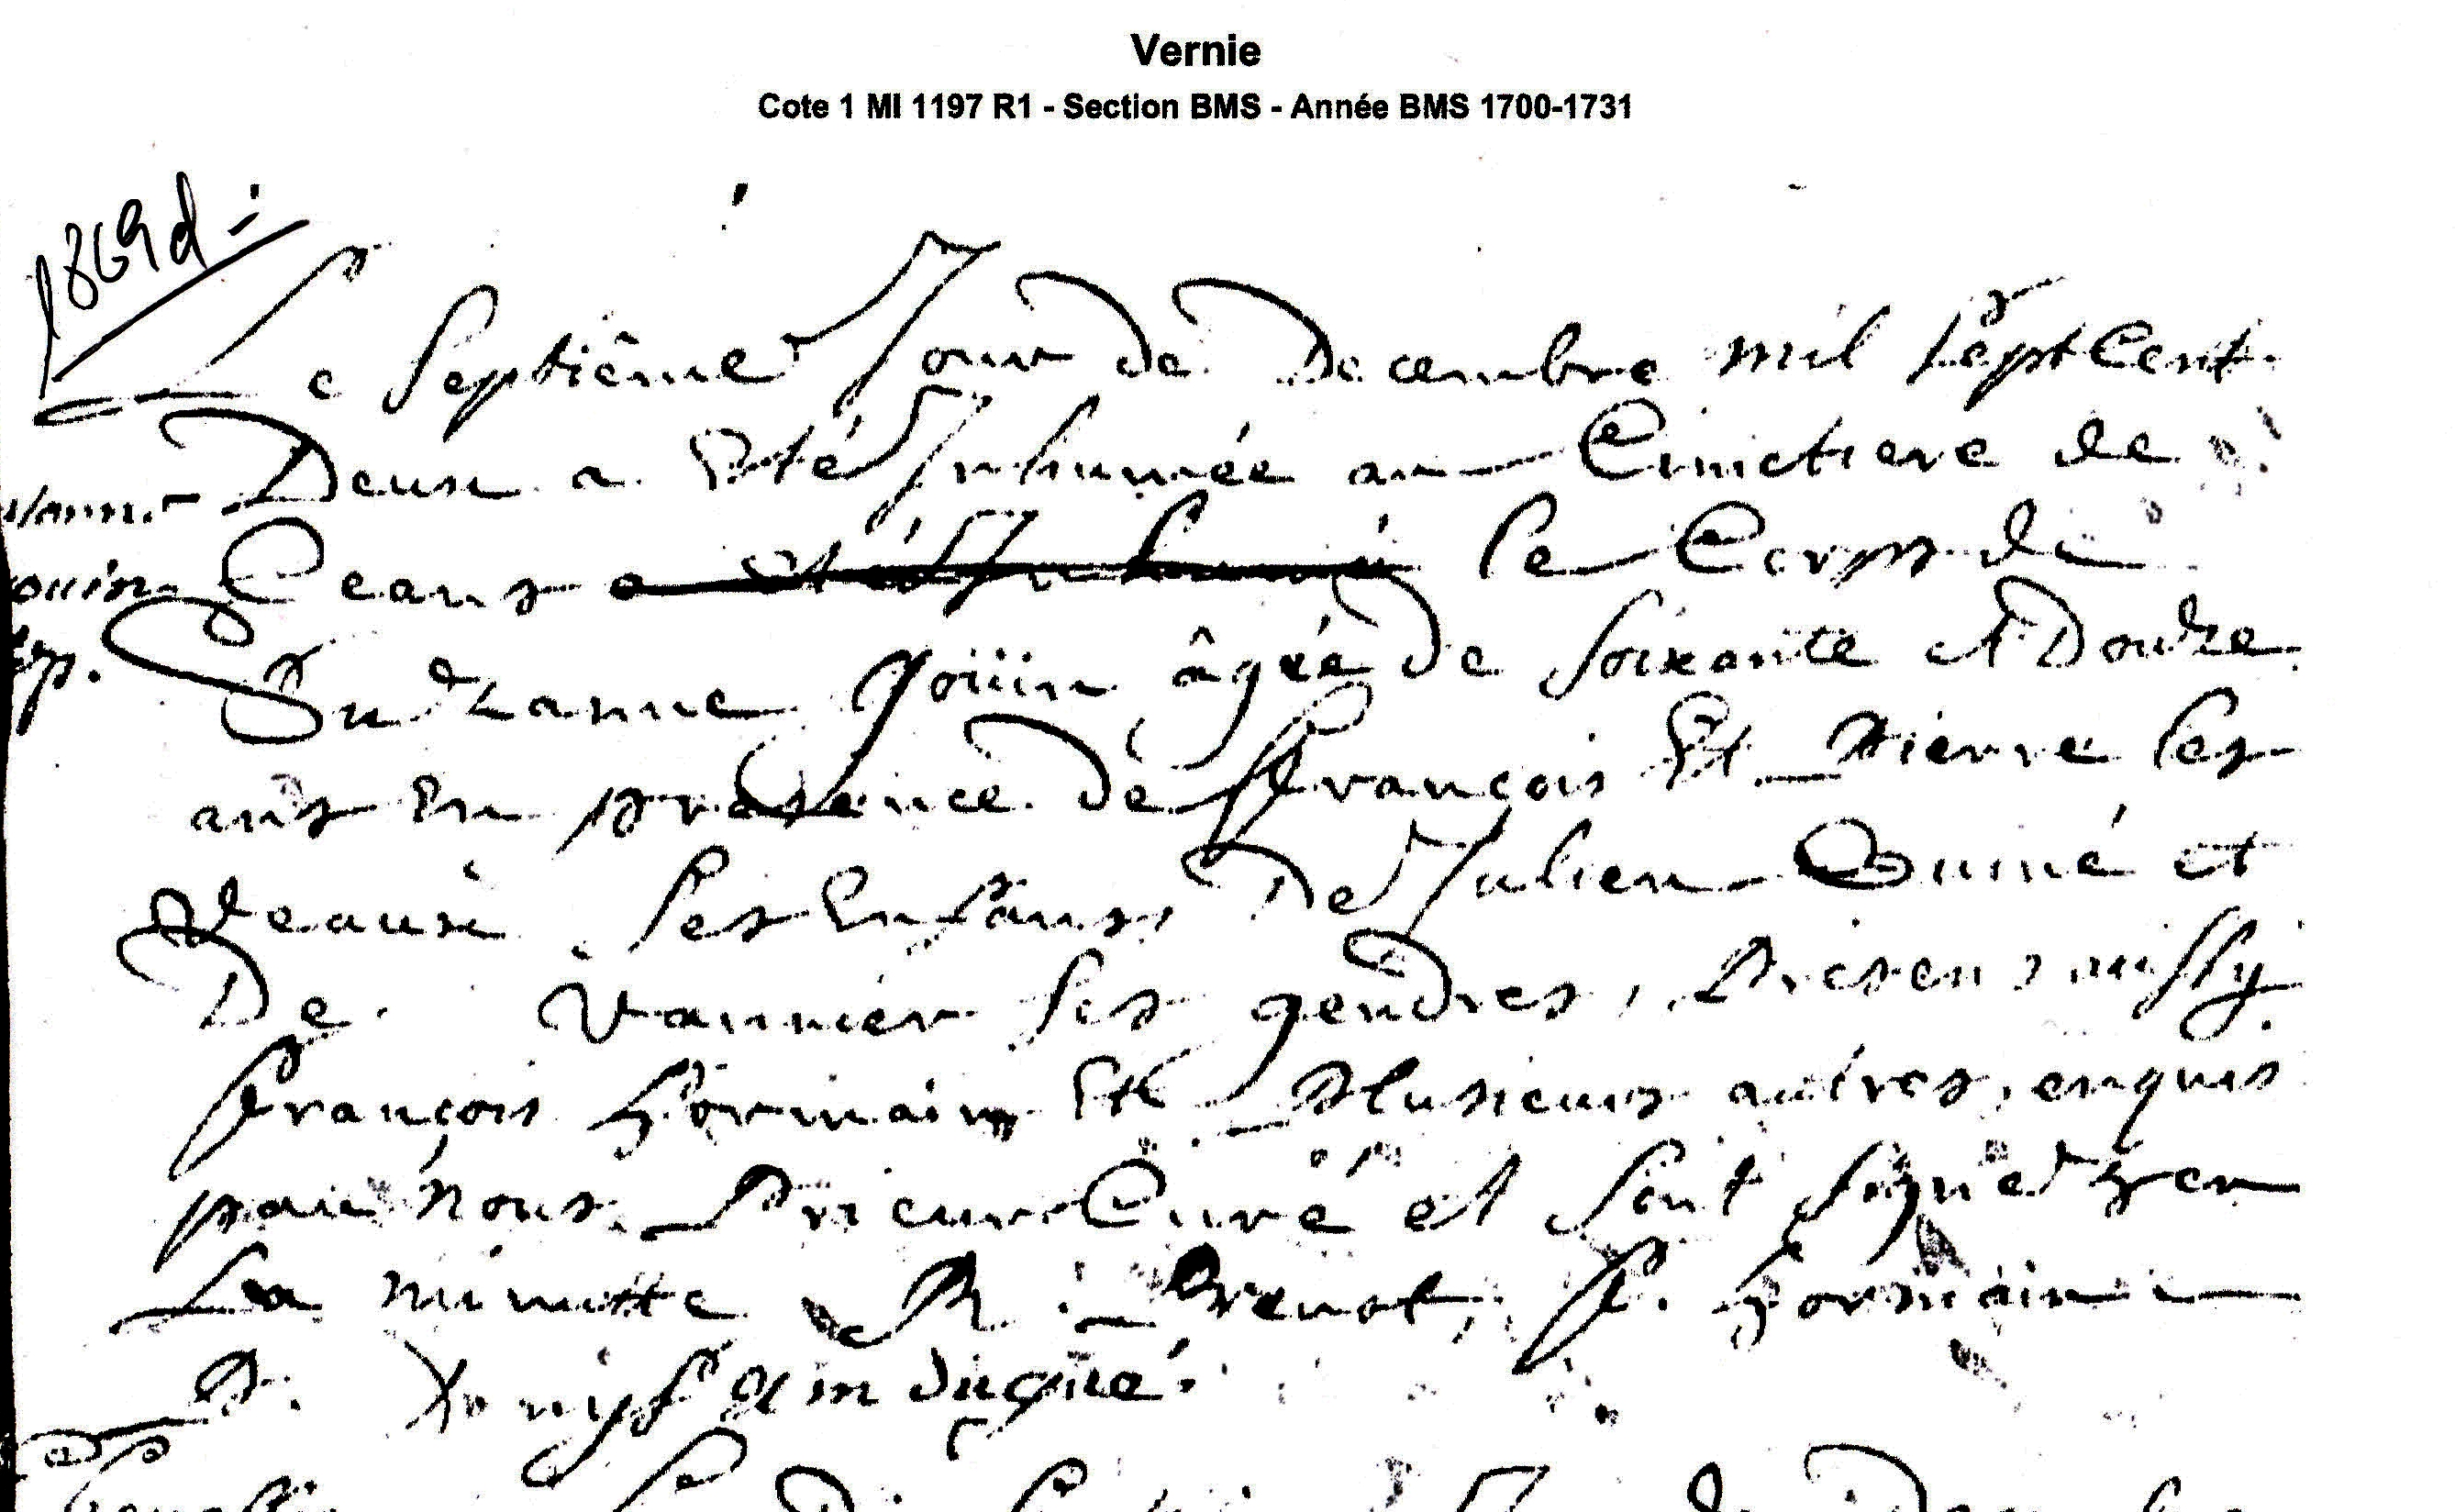 Vernie
Cote 1 MI 1197 R1 - Section BMS - Année BMS 1700-1731
1869d
Le Septiême Jour de Decembre mil sept Cent
Deux a Eté Inhumée au Cimetiere de
Ceans a eté Inhumé le Corps de
ouin
Suzanne goüin âgée de soixante et Douze
ans En presence de françois Et Pierre les
Veaux ses Enfans, De Julien et
De Vannier ses gendres, Presens aussy
françois formain Et Plusieurs autres, enquis
par nous Prieur Curé et sont signez en
La minutte R. Prenot, f. formain
P.